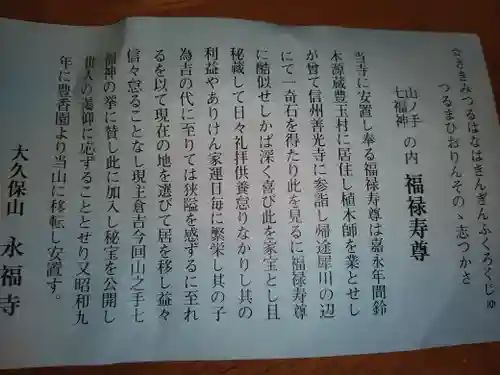 さききみつるはなはきんぎんふくろくじゅ
つるまひおりんそのゝ志づかさ
山ノ手
七福神 の内 福禄寿尊
当寺に安置し奉る福禄寿尊は嘉永年間鈴
木源蔵豊玉村に居住し植木師を業とせし
が曾て信州善光寺に参詣し帰途犀川の辺
にて一奇石を得たり此を見るに福禄寿尊
に酷似せしかば深く喜び此を家宝とし且
秘蔵して日々礼拝供養怠りなかりし其の
利益やありけん家運日毎に繁栄し其の子
為吉の代に至りては狭隘を感ずるに至れ
るを以て現在の地を選びて居を移し益々
信々怠ることなし現主倉吉今回山之手七
福神の挙に賛し此に加入し秘宝を公開し
衆人の渇仰に応ずることとせり又昭和九
年に豊香園より当山に移転し安置す。
大久保山 永福寺